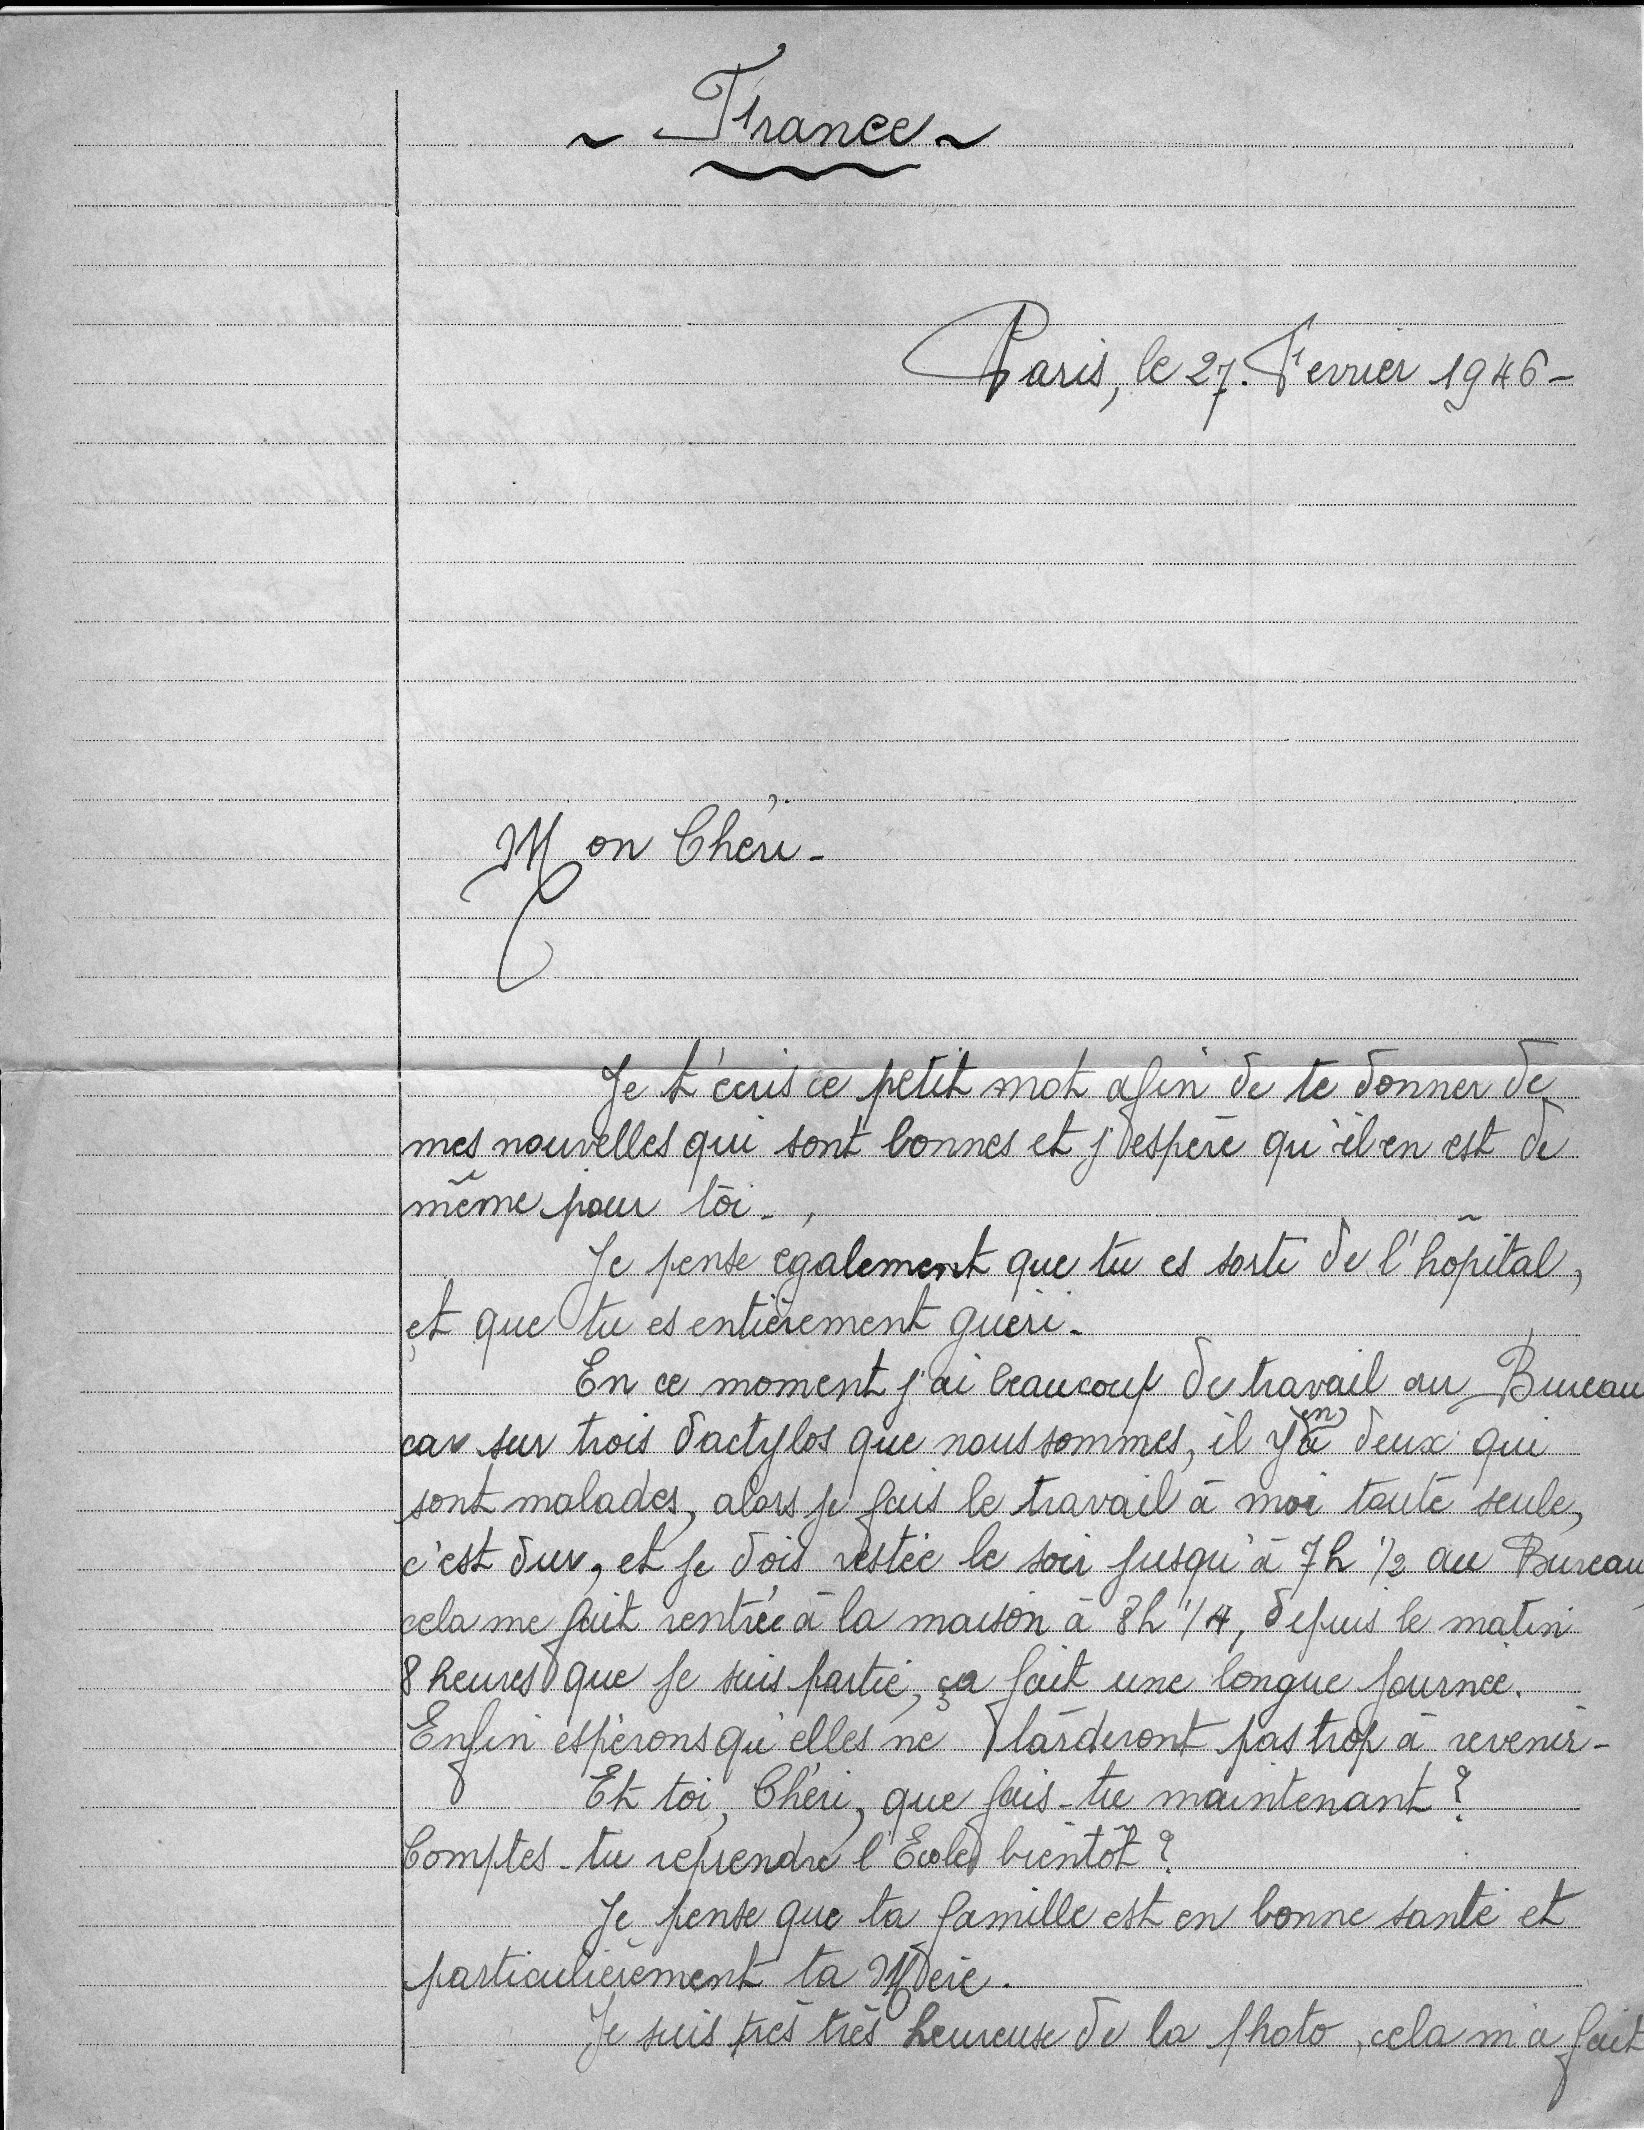 ~ France ~
Paris, le 27. Fevrier 1946 -
Mon Chéri -
Je t'écris ce petit mot afin de te donner de
mes nouvelles qui sont bonnes et j'espère qu'il en est de
même pour toi - ,
Je pense egalement que tu es sorti de l'hôpital,
et que tu es entièrement guéri -
En ce moment j'ai beaucoup de travail au Bureau
car sur trois dactylos que nous sommes, il y en a deux qui
sont malades, alors je fais le travail à moi toute seule,
c'est dur, et je dois restée le soir jusqu'à 7h 1/2 au Bureau,
cela me fait rentrée à la maison à 8h 1/4, depuis le matin
8 heures que je suis partie, ça fait une longue journée.
Enfin espérons qu'elles ne tarderont pas trop à revenir -
Et toi, Chéri, que fais-tu maintenant ?
Comptes-tu reprendre l'Ecole bientôt ?
Je pense que ta famille est en bonne santé et
particulièrement ta Mère.
Je suis très très heureuse de la photo, cela m'a fait